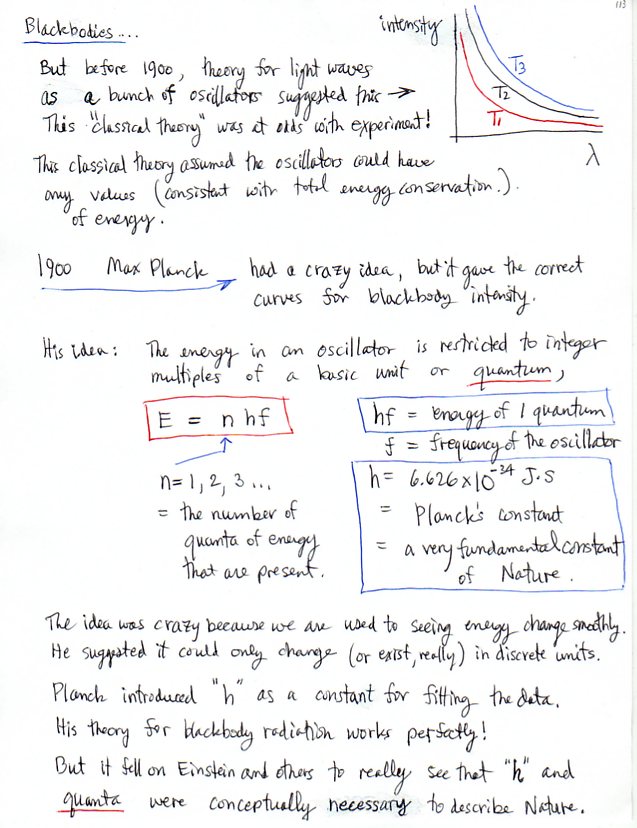 113
Blackbodies....
intensity
T3
T2
T1
λ
But before 1900, theory for light waves
as a bunch of oscillators suggested this →
This "classical theory" was at odds with experiment!
This classical theory assumed the oscillators could have
any values (consistent with total energy conservation.).
of energy.
1900 Max Planck → had a crazy idea, but it gave the correct
curves for blackbody intensity.
His idea: The energy in an oscillator is restricted to integer
multiples of a basic unit or quantum,
E = n hf
hf = energy of 1 quantum
f = frequency of the oscillator
n = 1, 2, 3 ...
= the number of
quanta of energy
that are present.
h = 6.626×10⁻³⁴ J·S
= Planck's constant
= a very fundamental constant
of Nature.
The idea was crazy because we are used to seeing energy change smoothly.
He suggested it could only change (or exist, really) in discrete units.
Planck introduced "h" as a constant for fitting the data.
His theory for blackbody radiation works perfectly!
But it fell on Einstein and others to really see that "h" and
quanta were conceptually necessary to describe Nature.